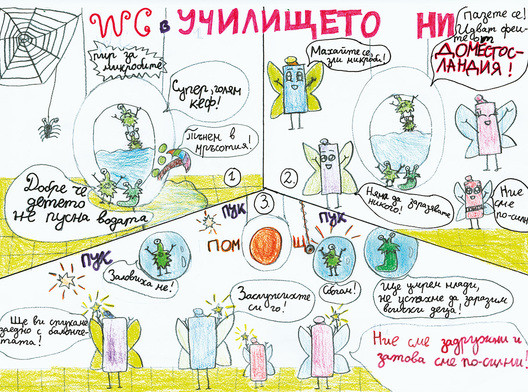 WC в УЧИЛИЩЕТО НИ
пир за
микробите
Супер, голям
кеф!
Тънем в
мръсотия!
Добре че
детето
не пусна водата
1
Махайте се,
зли микроби!
Пазете се!
Идват феи-
те от
ДОМЕСТОС-
ЛАНДИЯ!
2.
Няма да заразявате
никого!
Ние
сме
по-силни
3
ПУК
ПУК
ПУК
ПОМ
Заловиха ме!
Сбогом!
Ще умрем млади,
не успяхме да заразим
всички деца!
Ще ви спукаме
заедно с балонче-
тата!
Заслужихте
си го!
Ние сме задружни и
затова сме по-силни!